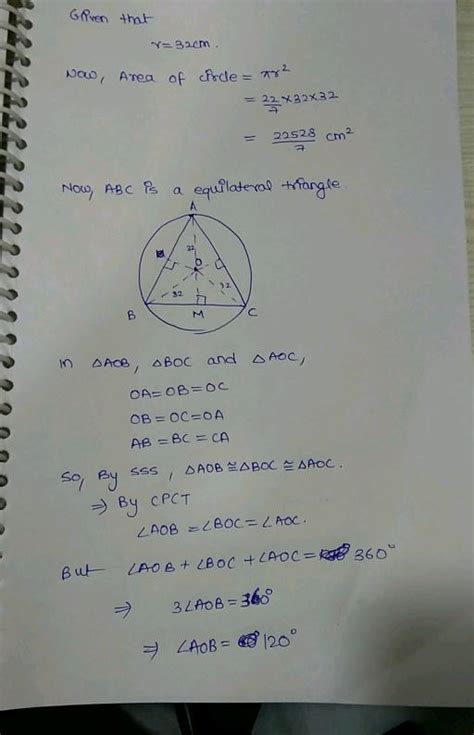 Given that
r=32cm.
Now, Area of circle = πr²
= 22/7 ×32×32
= 22528/7 cm²
Now, ABC is a equilateral triangle.
A
32
O
32 32
B M C
In △AOB, △BOC and △AOC,
OA=OB=OC
OB=OC=OA
AB=BC=CA
So, By SSS, △AOB≅△BOC≅△AOC.
⇒ By CPCT
∠AOB=∠BOC=∠AOC.
But ∠AOB+∠BOC+∠AOC= 360°
⇒ 3∠AOB=360°
⇒ ∠AOB= 120°